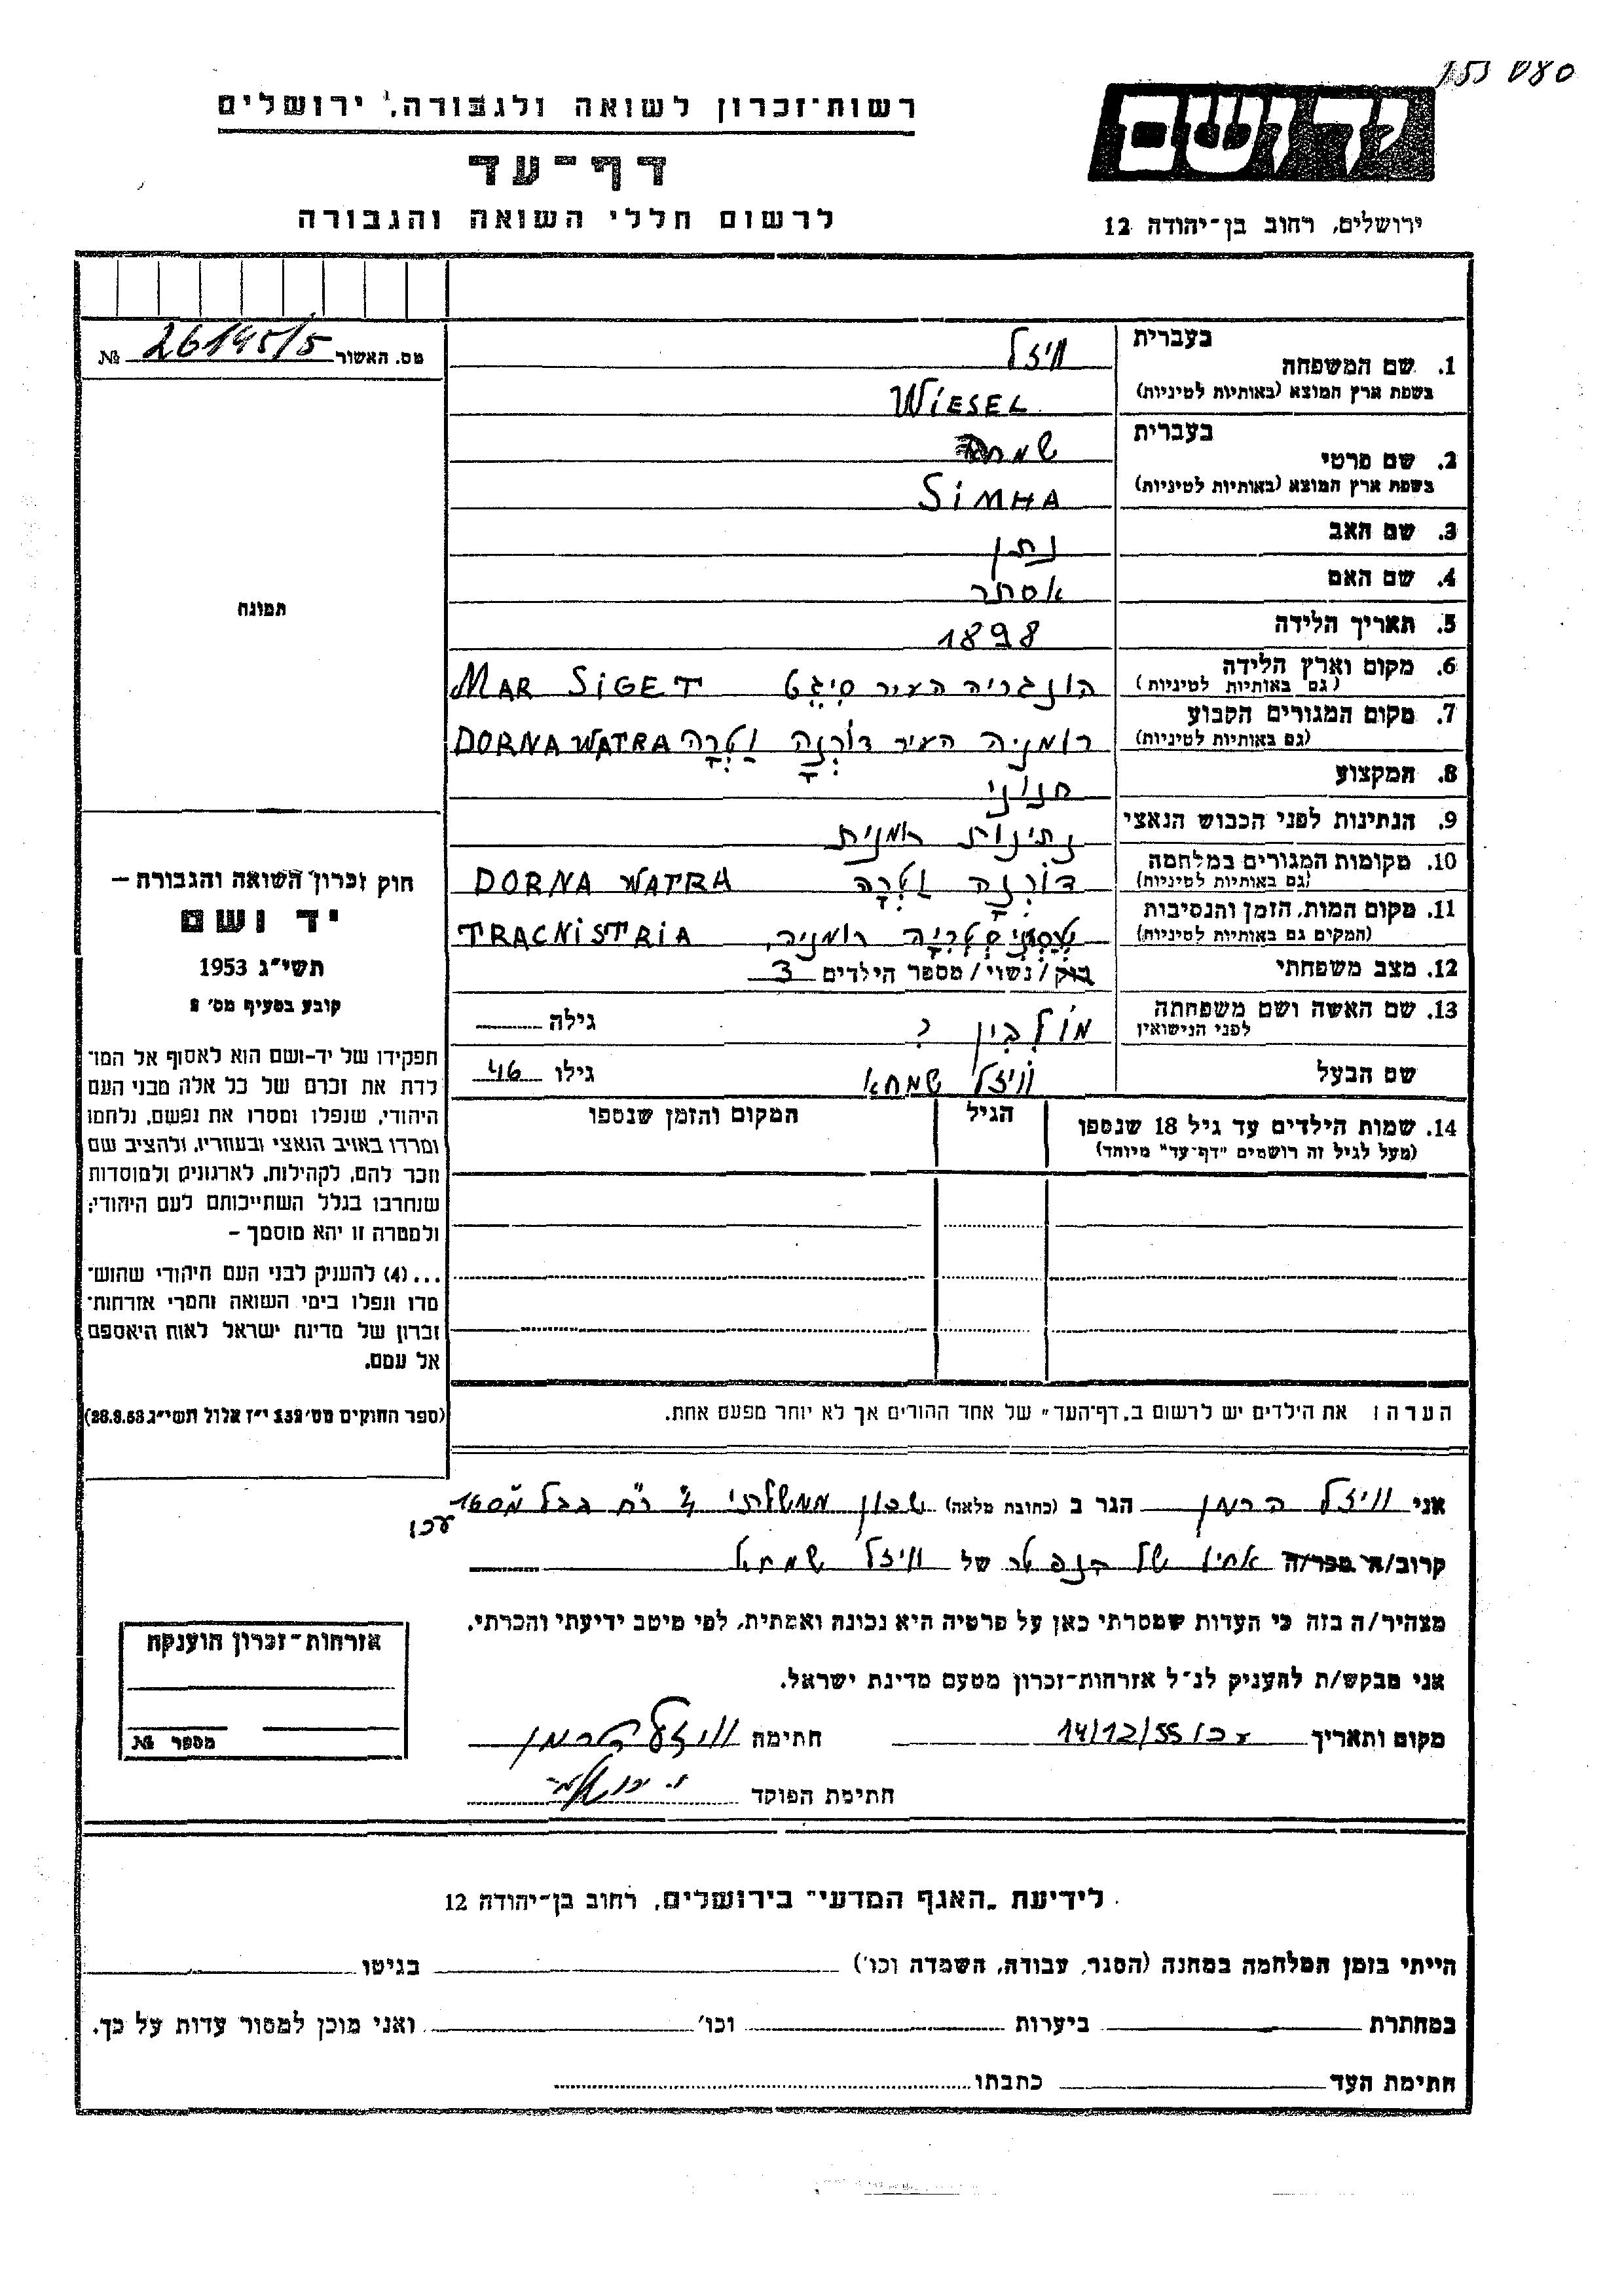 רשות־זכרון לשואה ולגבורה, ירושלים
דף־עד
לרשום חללי השואה והגבורה
ידושם
ירושלים, רחוב בן־יהודה 12
מס. האשור 26195/5 №
תמונה
חוק זכרון השואה והגבורה –
יד ושם
תשי״ג 1953
קובע בסעיף מס׳ 2
תפקידו של יד-ושם הוא לאסוף אל המו־
לדת את זכרם של כל אלה מבני העם
היהודי, שנפלו ומסרו את נפשם, נלחמו
ומרדו באויב הנאצי ובעוזריו, ולהציב שם
וזכר להם, לקהילות, לארגונים ולמוסדות
שנחרבו בגלל השתייכותם לעם היהודי;
ולמטרה זו יהא מוסמך –
...(4) להעניק לבני העם היהודי שהוש־
מדו ונפלו בימי השואה והמרי אזרחות־
זכרון של מדינת ישראל לאות היאספם
אל עמם.
(ספר החוקים מס׳ 132 י״ז אלול תשי״ג 28.8.53)
1. שם המשפחה בעברית ויזל
בשפת ארץ המוצא (באותיות לטיניות) WIESEL
2. שם פרטי בעברית שמחה
בשפת ארץ המוצא (באותיות לטיניות) SIMHA
3. שם האב נתן
4. שם האם אסתר
5. תאריך הלידה 1898
6. מקום וארץ הלידה (גם באותיות לטיניות) הונגריה העיר סִיגֶט MAR SIGET
7. מקום המגורים הקבוע (גם באותיות לטיניות) רומניה העיר דוֹרְנָה וַטְרָה DORNA WATRA
8. המקצוע חנווני
9. הנתינות לפני הכבוש הנאצי נתינות רומנית
10. מקומות המגורים במלחמה (גם באותיות לטיניות) דוֹרְנָה וַטְרָה DORNA WATRA
11. מקום המות, הזמן והנסיבות (המקום גם באותיות לטיניות) רומניה, TRACNISTRIA
12. מצב משפחתי רוק/נשוי/מספר הילדים 3
13. שם האשה ושם משפחתה לפני הנישואין מוֹלְבִין ? גילה
שם הבעל וויזל שמחא גילו 46
14. שמות הילדים עד גיל 18 שנספו הגיל המקום והזמן שנספו
(מעל לגיל זה רושמים "דף־עד" מיוחד)
הערה: את הילדים יש לרשום ב„דף־העד״ של אחד ההורים אך לא יותר מפעם אחת.
אני וויזל הרמן הגר ב (כתובת מלאה) שכון ממשלתי
עכו
קרוב/ה מכר/ה אחיו של הנפטר של וויזל שמחא
מצהיר/ה בזה כי העדות שמסרתי כאן על פרטיה היא נכונה ואמתית, לפי מיטב ידיעתי והכרתי.
אני מבקש/ת להעניק לנ״ל אזרחות־זכרון מטעם מדינת ישראל.
מקום ותאריך עכו 14/12/55 חתימה וויזל הרמן
חתימת הפוקד
אזרחות־זכרון הוענקה
מספר №
לידיעת „האגף המדעי״ בירושלים, רחוב בן־יהודה 12
הייתי בזמן המלחמה במחנה (הסגר, עבודה, השמדה וכו׳) בגיטו
במחתרת ביערות וכו׳ ואני מוכן למסור עדות על כך.
חתימת העד כתבתו